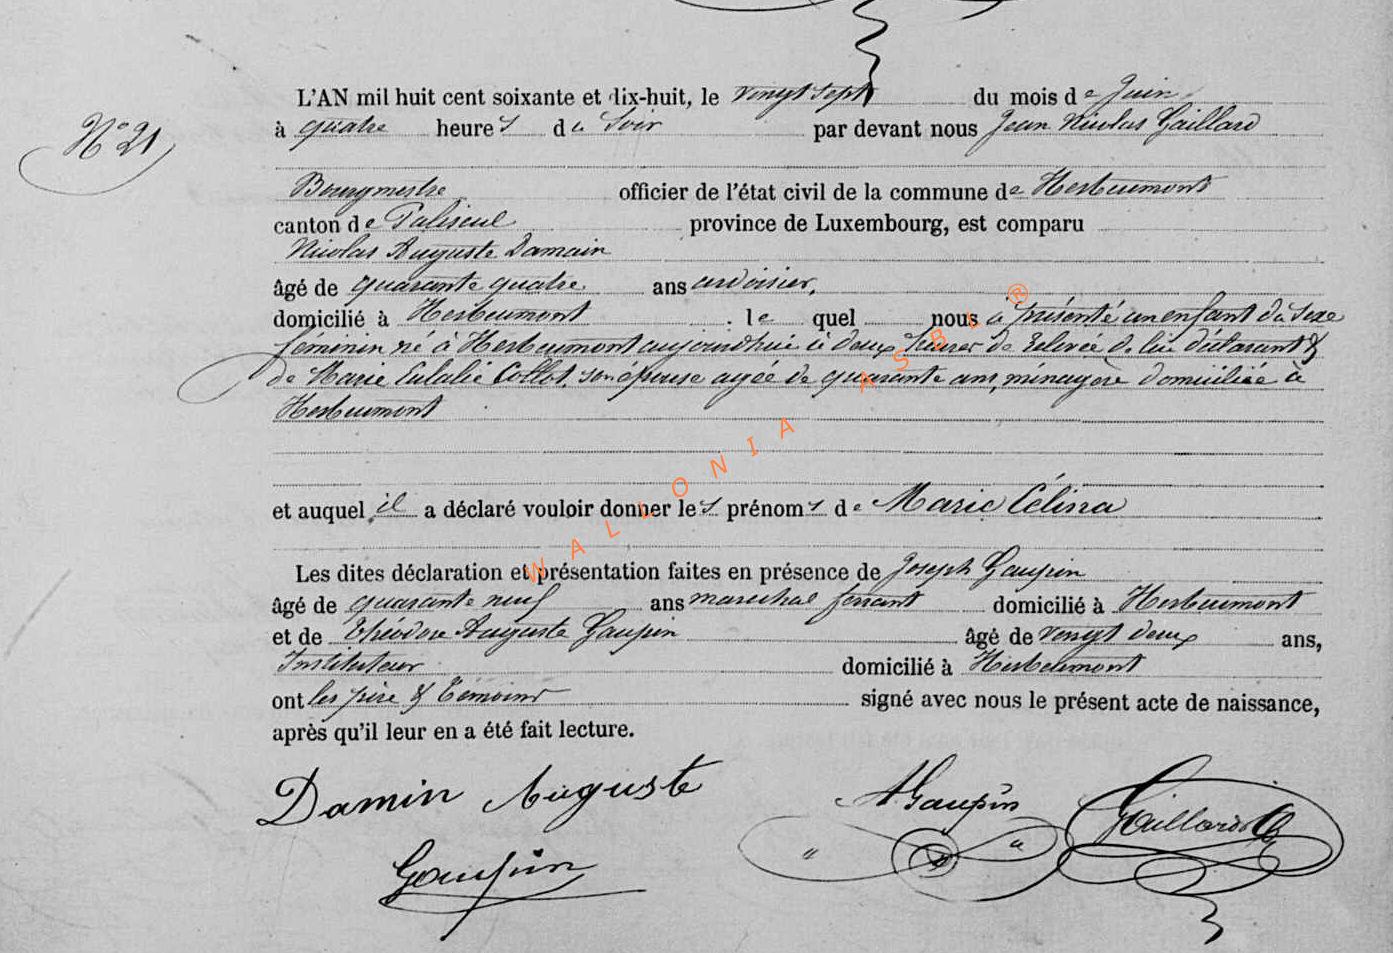 L'AN mil huit cent soixante et dix-huit, le vingt sept du mois de Juin
N° 21
à quatre heures du Soir par devant nous Jean Nicolas Gaillard
Bourgmestre officier de l'état civil de la commune de Herbeumont
canton de Paliseul province de Luxembourg, est comparu
Nicolas Auguste Damain
âgé de quarante quatre ans ardoisier,
domicilié à Herbeumont le quel nous a présenté un enfant du sexe
féminin né à Herbeumont aujourdhui à deux heures de relevée de lui déclarant &
de Marie Eulalie Collot, son épouse agée de quarante ans, ménagère domiciliée à
Herbeumont
et auquel il a déclaré vouloir donner les prénoms de Marie Célina
Les dites déclaration et présentation faites en présence de Joseph Gaupin
âgé de quarante neuf ans marechal ferrant domicilié à Herbeumont
et de Théodore Auguste Gaupin âgé de vingt deux ans,
Instituteur domicilié à Herbeumont
ont les père & témoins signé avec nous le présent acte de naissance,
après qu'il leur en a été fait lecture.
Damin Auguste
A Gaupin
Gaillard
Gaupin
WALLONIA ASBL ®